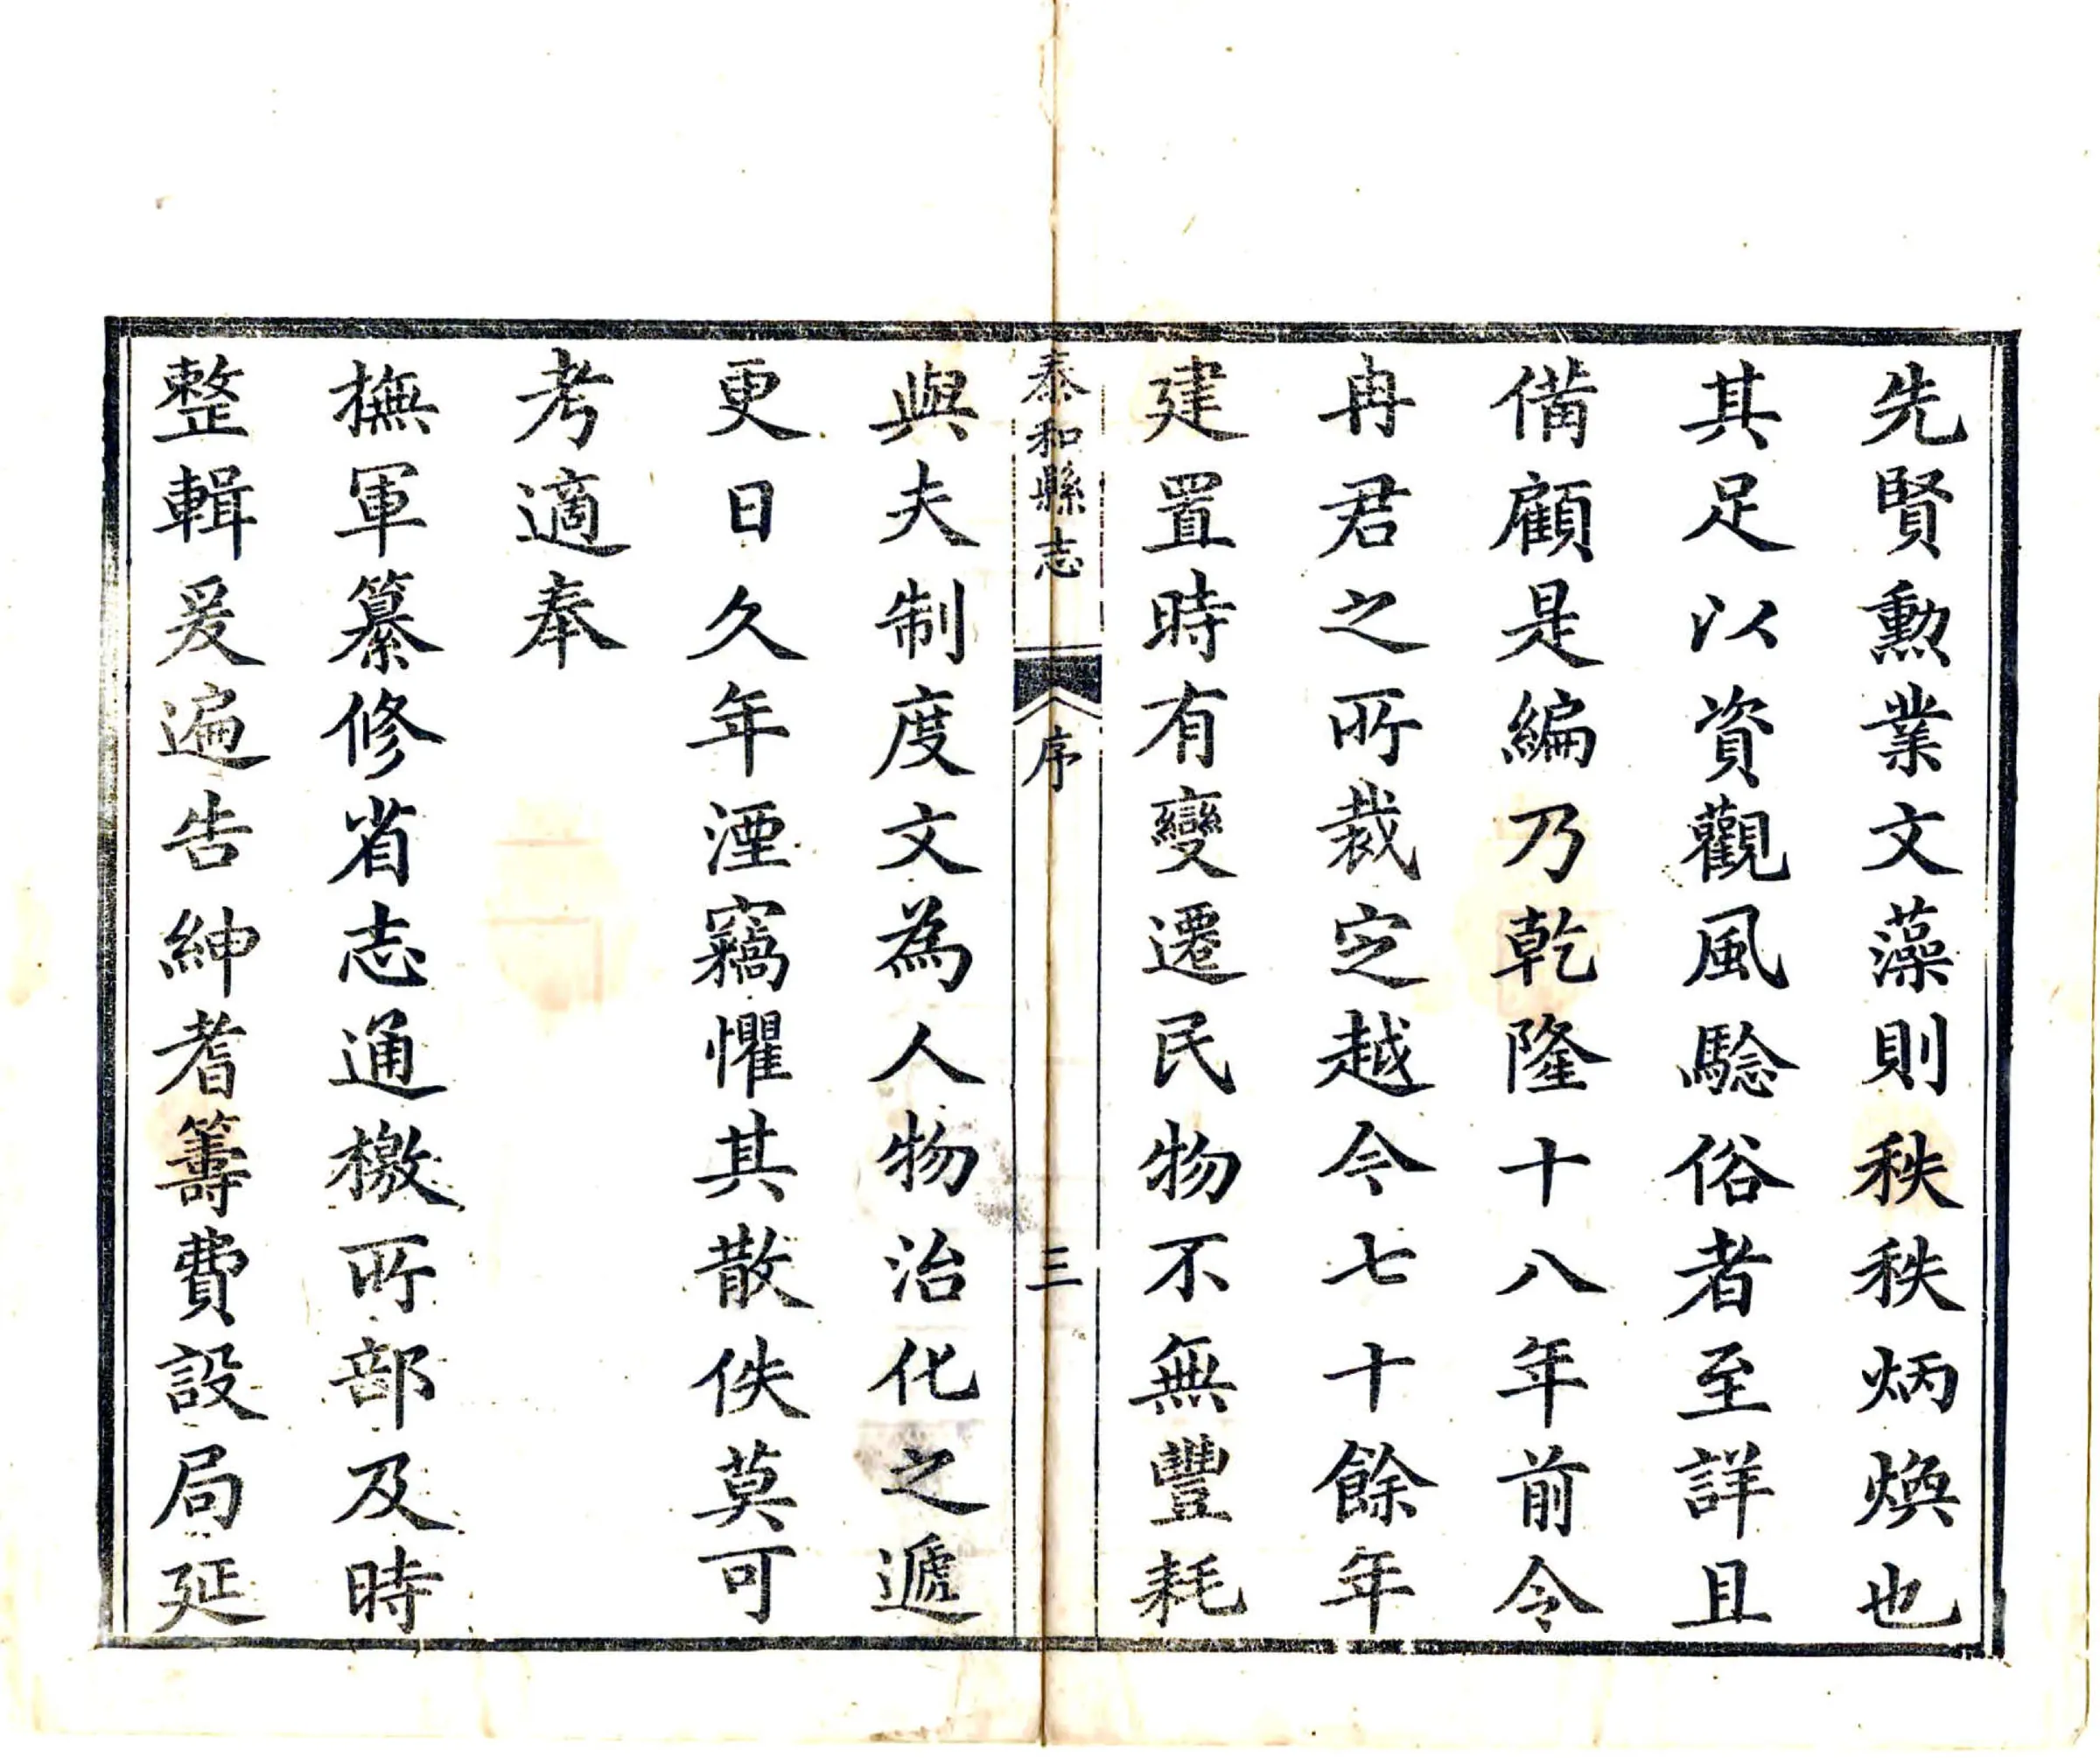 先賢勳業文藻則秩秩炳煥也
其足以資觀風騐俗者至詳且
備顧是編乃乾隆十八年前令
冉君之所裁定越今七十餘年
建置時有變遷民物不無豐耗
泰和縣志 序 三
與夫制度文為人物治化之遞
更日久年湮竊懼其散佚莫可
考適奉
撫軍纂修省志通檄所部及時
整輯爰遍告紳耆籌費設局延